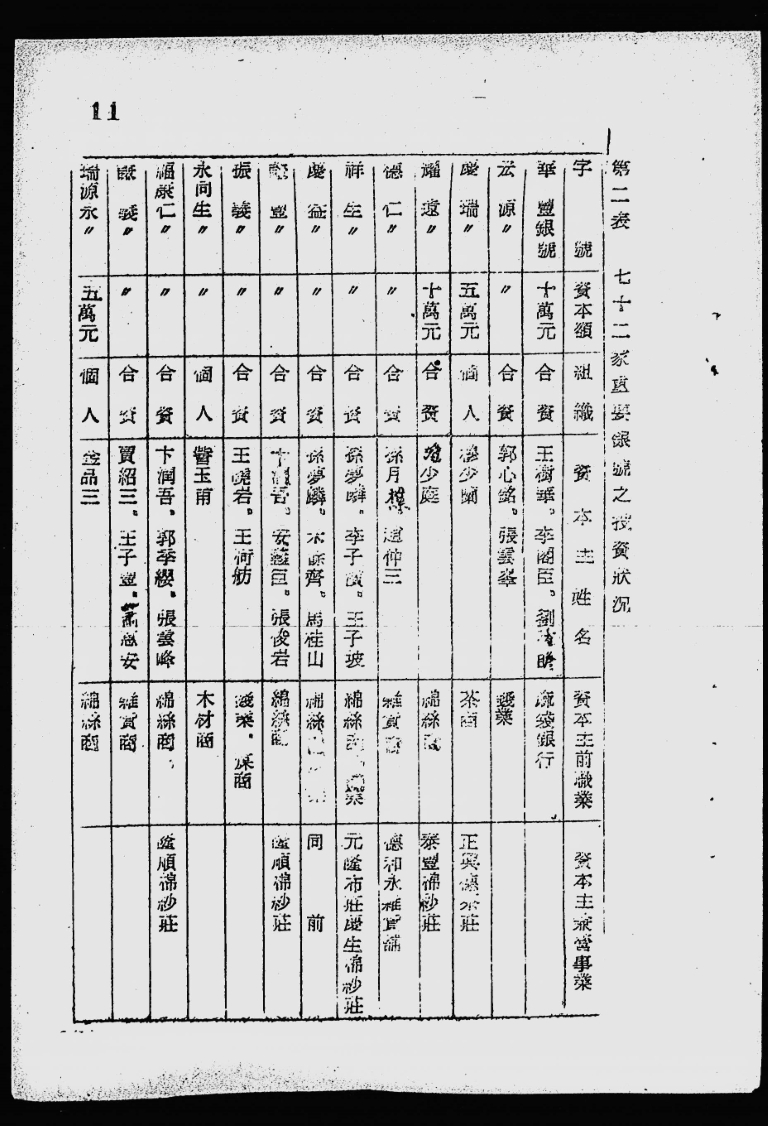 11
第二表 七十二家重要銀號之投資狀況
字號 資本額 組織 資本主姓名 資本主前職業 資本主兼營事業
華豐銀號 十萬元 合資 王樹華。李閣臣。劉 瞻 銀行
宏源〃 〃 合資 郭心銘。張雲峯 錢業
慶瑞〃 五萬元 個人 少蘭 茶商 正興德茶莊
耀遠〃 十萬元 合資 少庭 綿絲商 泰豐棉紗莊
德仁〃 〃 合資 孫月樵。趙仲三 雜貨商 德和永雜貨舖
祥生〃 〃 合資 孫夢麟。李子 。王子坡 綿絲商 業 元隆布莊慶生棉紗莊
慶益〃 〃 合資 孫夢麟。 齊。馬桂山 綿絲 同前
豐〃 〃 合資 卞潤吾。安 臣。張俊岩 綿絲商 隆順棉紗莊
振義〃 〃 合資 王曉岩。王荷舫 錢業。 商
永同生〃 〃 個人 訾玉甫 木材商
福康仁〃 〃 合資 卞潤吾。郭季纓。張雲峰 綿絲商 隆順棉紗莊
義〃 〃 合資 賈紹三。王子豐。 安 雜貨商
瑞源永〃 五萬元 個人 金品三 綿絲商